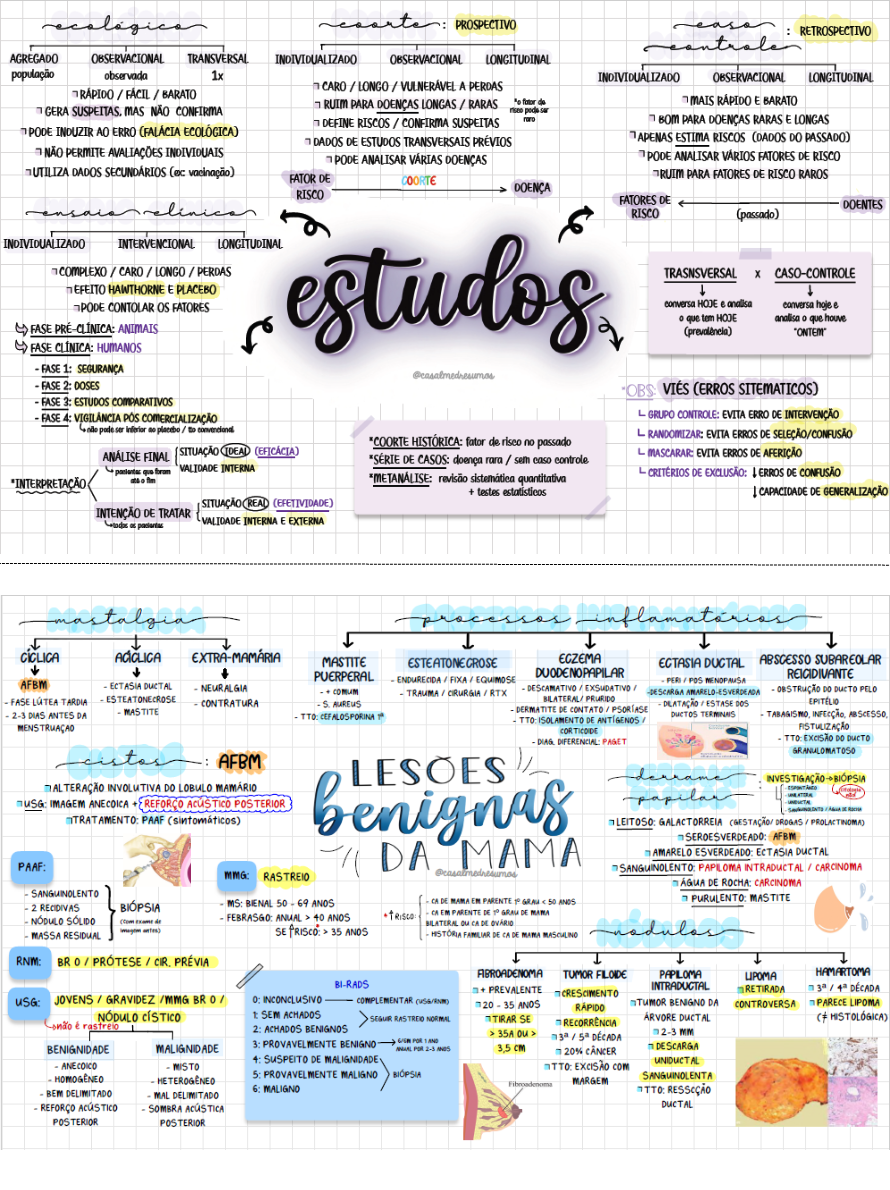 ecológico
AGREGADO OBSERVACIONAL TRANSVERSAL
população observada 1x
RÁPIDO / FÁCIL / BARATO
GERA SUSPEITAS, MAS NÃO CONFIRMA
PODE INDUZIR AO ERRO (FALÁCIA ECOLÓGICA)
NÃO PERMITE AVALIAÇÕES INDIVIDUAIS
UTILIZA DADOS SECUNDÁRIOS (ex: vacinação)
coorte : PROSPECTIVO
INDIVIDUALIZADO OBSERVACIONAL LONGITUDINAL
CARO / LONGO / VULNERÁVEL A PERDAS
RUIM PARA DOENÇAS LONGAS / RARAS
*o fator de
risco pode ser
raro
DEFINE RISCOS / CONFIRMA SUSPEITAS
DADOS DE ESTUDOS TRANSVERSAIS PRÉVIOS
PODE ANALISAR VÁRIAS DOENÇAS
FATOR DE
RISCO
COORTE
DOENÇA
caso
controle
: RETROSPECTIVO
INDIVIDUALIZADO OBSERVACIONAL LONGITUDINAL
MAIS RÁPIDO E BARATO
BOM PARA DOENÇAS RARAS E LONGAS
APENAS ESTIMA RISCOS (DADOS DO PASSADO)
PODE ANALISAR VÁRIOS FATORES DE RISCO
RUIM PARA FATORES DE RISCO RAROS
FATORES DE
RISCO
(passado)
DOENTES
ensaio clínico
INDIVIDUALIZADO INTERVENCIONAL LONGITUDINAL
COMPLEXO / CARO / LONGO / PERDAS
EFEITO HAWTHORNE E PLACEBO
PODE CONTOLAR OS FATORES
FASE PRÉ-CLÍNICA: ANIMAIS
FASE CLÍNICA: HUMANOS
- FASE 1: SEGURANÇA
- FASE 2: DOSES
- FASE 3: ESTUDOS COMPARATIVOS
- FASE 4: VIGILÂNCIA PÓS COMERCIALIZAÇÃO
não pode ser inferior ao placebo / tto convencional
*INTERPRETAÇÃO
ANÁLISE FINAL
pacientes que foram
até o fim
SITUAÇÃO IDEAL (EFICÁCIA)
VALIDADE INTERNA
INTENÇÃO DE TRATAR
todos os pacientes
SITUAÇÃO REAL (EFETIVIDADE)
VALIDADE INTERNA E EXTERNA
estudos
@casalmedresumos
TRASNSVERSAL x CASO-CONTROLE
conversa HOJE e analisa
o que tem HOJE
(prevalência)
conversa hoje e
analisa o que houve
"ONTEM"
*COORTE HISTÓRICA: fator de risco no passado
*SÉRIE DE CASOS: doença rara / sem caso controle
*METANÁLISE: revisão sistemática quantitativa
+ testes estatísticos
*OBS: VIÉS (ERROS SITEMATICOS)
GRUPO CONTROLE: EVITA ERRO DE INTERVENÇÃO
RANDOMIZAR: EVITA ERROS DE SELEÇÃO/CONFUSÃO
MASCARAR: EVITA ERROS DE AFERIÇÃO
CRITÉRIOS DE EXCLUSÃO: ↓ERROS DE CONFUSÃO
↓CAPACIDADE DE GENERALIZAÇÃO
mastalgia
CÍCLICA ACÍCLICA EXTRA-MAMÁRIA
AFBM
- FASE LÚTEA TARDIA
- 2-3 DIAS ANTES DA
MENSTRUAÇAO
- ECTASIA DUCTAL
- ESTEATONECROSE
- MASTITE
- NEURALGIA
- CONTRATURA
processos inflamatórios
MASTITE
PUERPERAL
- + COMUM
- S. AUREUS
- TTO: CEFALOSPORINA 1ª
ESTEATONECROSE
- ENDURECIDA / FIXA / EQUIMOSE
- TRAUMA / CIRURGIA / RTX
ECZEMA
DUODENOPAPILAR
- DESCAMATIVO / EXSUDATIVO /
BILATERAL/ PRURIDO
- DERMATITE DE CONTATO / PSORÍASE
- TTO: ISOLAMENTO DE ANTÍGENOS /
CORTICOIDE
- DIAG. DIFERENCIAL: PAGET
ECTASIA DUCTAL
- PERI / PÓS MENOPAUSA
-DESCARGA AMARELO-ESVERDEADA
- DILATAÇÃO / ESTASE DOS
DUCTOS TERMINAIS
ABSCESSO SUBAREOLAR
RECIDIVANTE
- OBSTRUÇÃO DO DUCTO PELO
EPITÉLIO
- TABAGISMO, INFECÇÃO, ABSCESSO,
FISTULIZAÇÃO
- TTO: EXCISÃO DO DUCTO
GRANULOMATOSO
cistos : AFBM
ALTERAÇÃO INVOLUTIVA DO LOBULO MAMÁRIO
USG: IMAGEM ANECOICA + REFORÇO ACÚSTICO POSTERIOR
TRATAMENTO: PAAF (sintomáticos)
LESÕES
benignas
DA MAMA
@casalmedresumos
derrame
papilar
: INVESTIGAÇÃO→BIÓPSIA
- ESPONTÂNEO
- UNILATERAL
- UNIDUCTAL
- SANGUINOLENTO / ÁGUA DE ROCHA
LEITOSO: GALACTORREIA (GESTAÇÃO/ DROGAS / PROLACTINOMA)
SEROESVERDEADO: AFBM
AMARELO ESVERDEADO: ECTASIA DUCTAL
SANGUINOLENTO: PAPILOMA INTRADUCTAL / CARCINOMA
ÁGUA DE ROCHA: CARCINOMA
PURULENTO: MASTITE
PAAF:
- SANGUINOLENTO
- 2 RECIDIVAS
- NÓDULO SÓLIDO
- MASSA RESIDUAL
BIÓPSIA
(Com exame de
imagem antes)
MMG: RASTREIO
- MS: BIENAL 50 - 69 ANOS
- FEBRASGO: ANUAL > 40 ANOS
SE ↑RISCO: > 35 ANOS
* ↑RISCO:
- CA DE MAMA EM PARENTE 1º GRAU < 50 ANOS
- CA EM PARENTE DE 1º GRAU DE MAMA
BILATERAL OU CA DE OVÁRIO
- HISTÓRIA FAMILIAR DE CA DE MAMA MASCULINO
RNM: BR 0 / PRÓTESE / CIR. PRÉVIA
USG: JOVENS / GRAVIDEZ /MMG BR 0 /
NÓDULO CÍSTICO
não é rastreio
BENIGNIDADE
- ANECOICO
- HOMOGÊNEO
- BEM DELIMITADO
- REFORÇO ACÚSTICO
POSTERIOR
MALIGNIDADE
- MISTO
- HETEROGÊNEO
- MAL DELIMITADO
- SOMBRA ACÚSTICA
POSTERIOR
BI-RADS
0: INCONCLUSIVO COMPLEMENTAR (USG/RNM)
1: SEM ACHADOS
2: ACHADOS BENIGNOS
SEGUIR RASTREIO NORMAL
3: PROVAVELMENTE BENIGNO
6/6M POR 1 ANO
ANUAL POR 2-3 ANOS
4: SUSPEITO DE MALIGNIDADE
5: PROVAVELMENTE MALIGNO
BIÓPSIA
6: MALIGNO
nódulos
FIBROADENOMA
+ PREVALENTE
20 - 35 ANOS
TIRAR SE
> 35A OU >
3,5 CM
Fibroadenoma
TUMOR FILOIDE
CRESCIMENTO
RÁPIDO
RECORRÊNCIA
3ª / 5ª DÉCADA
20% CÂNCER
TTO: EXCISÃO COM
MARGEM
PAPILOMA
INTRADUCTAL
TUMOR BENIGNO DA
ÁRVORE DUCTAL
2-3 MM
DESCARGA
UNIDUCTAL
SANGUINOLENTA
TTO: RESSCÇÃO
DUCTAL
LIPOMA
RETIRADA
CONTROVERSA
HAMARTOMA
3ª / 4ª DÉCADA
PARECE LIPOMA
(≠ HISTOLÓGICA)